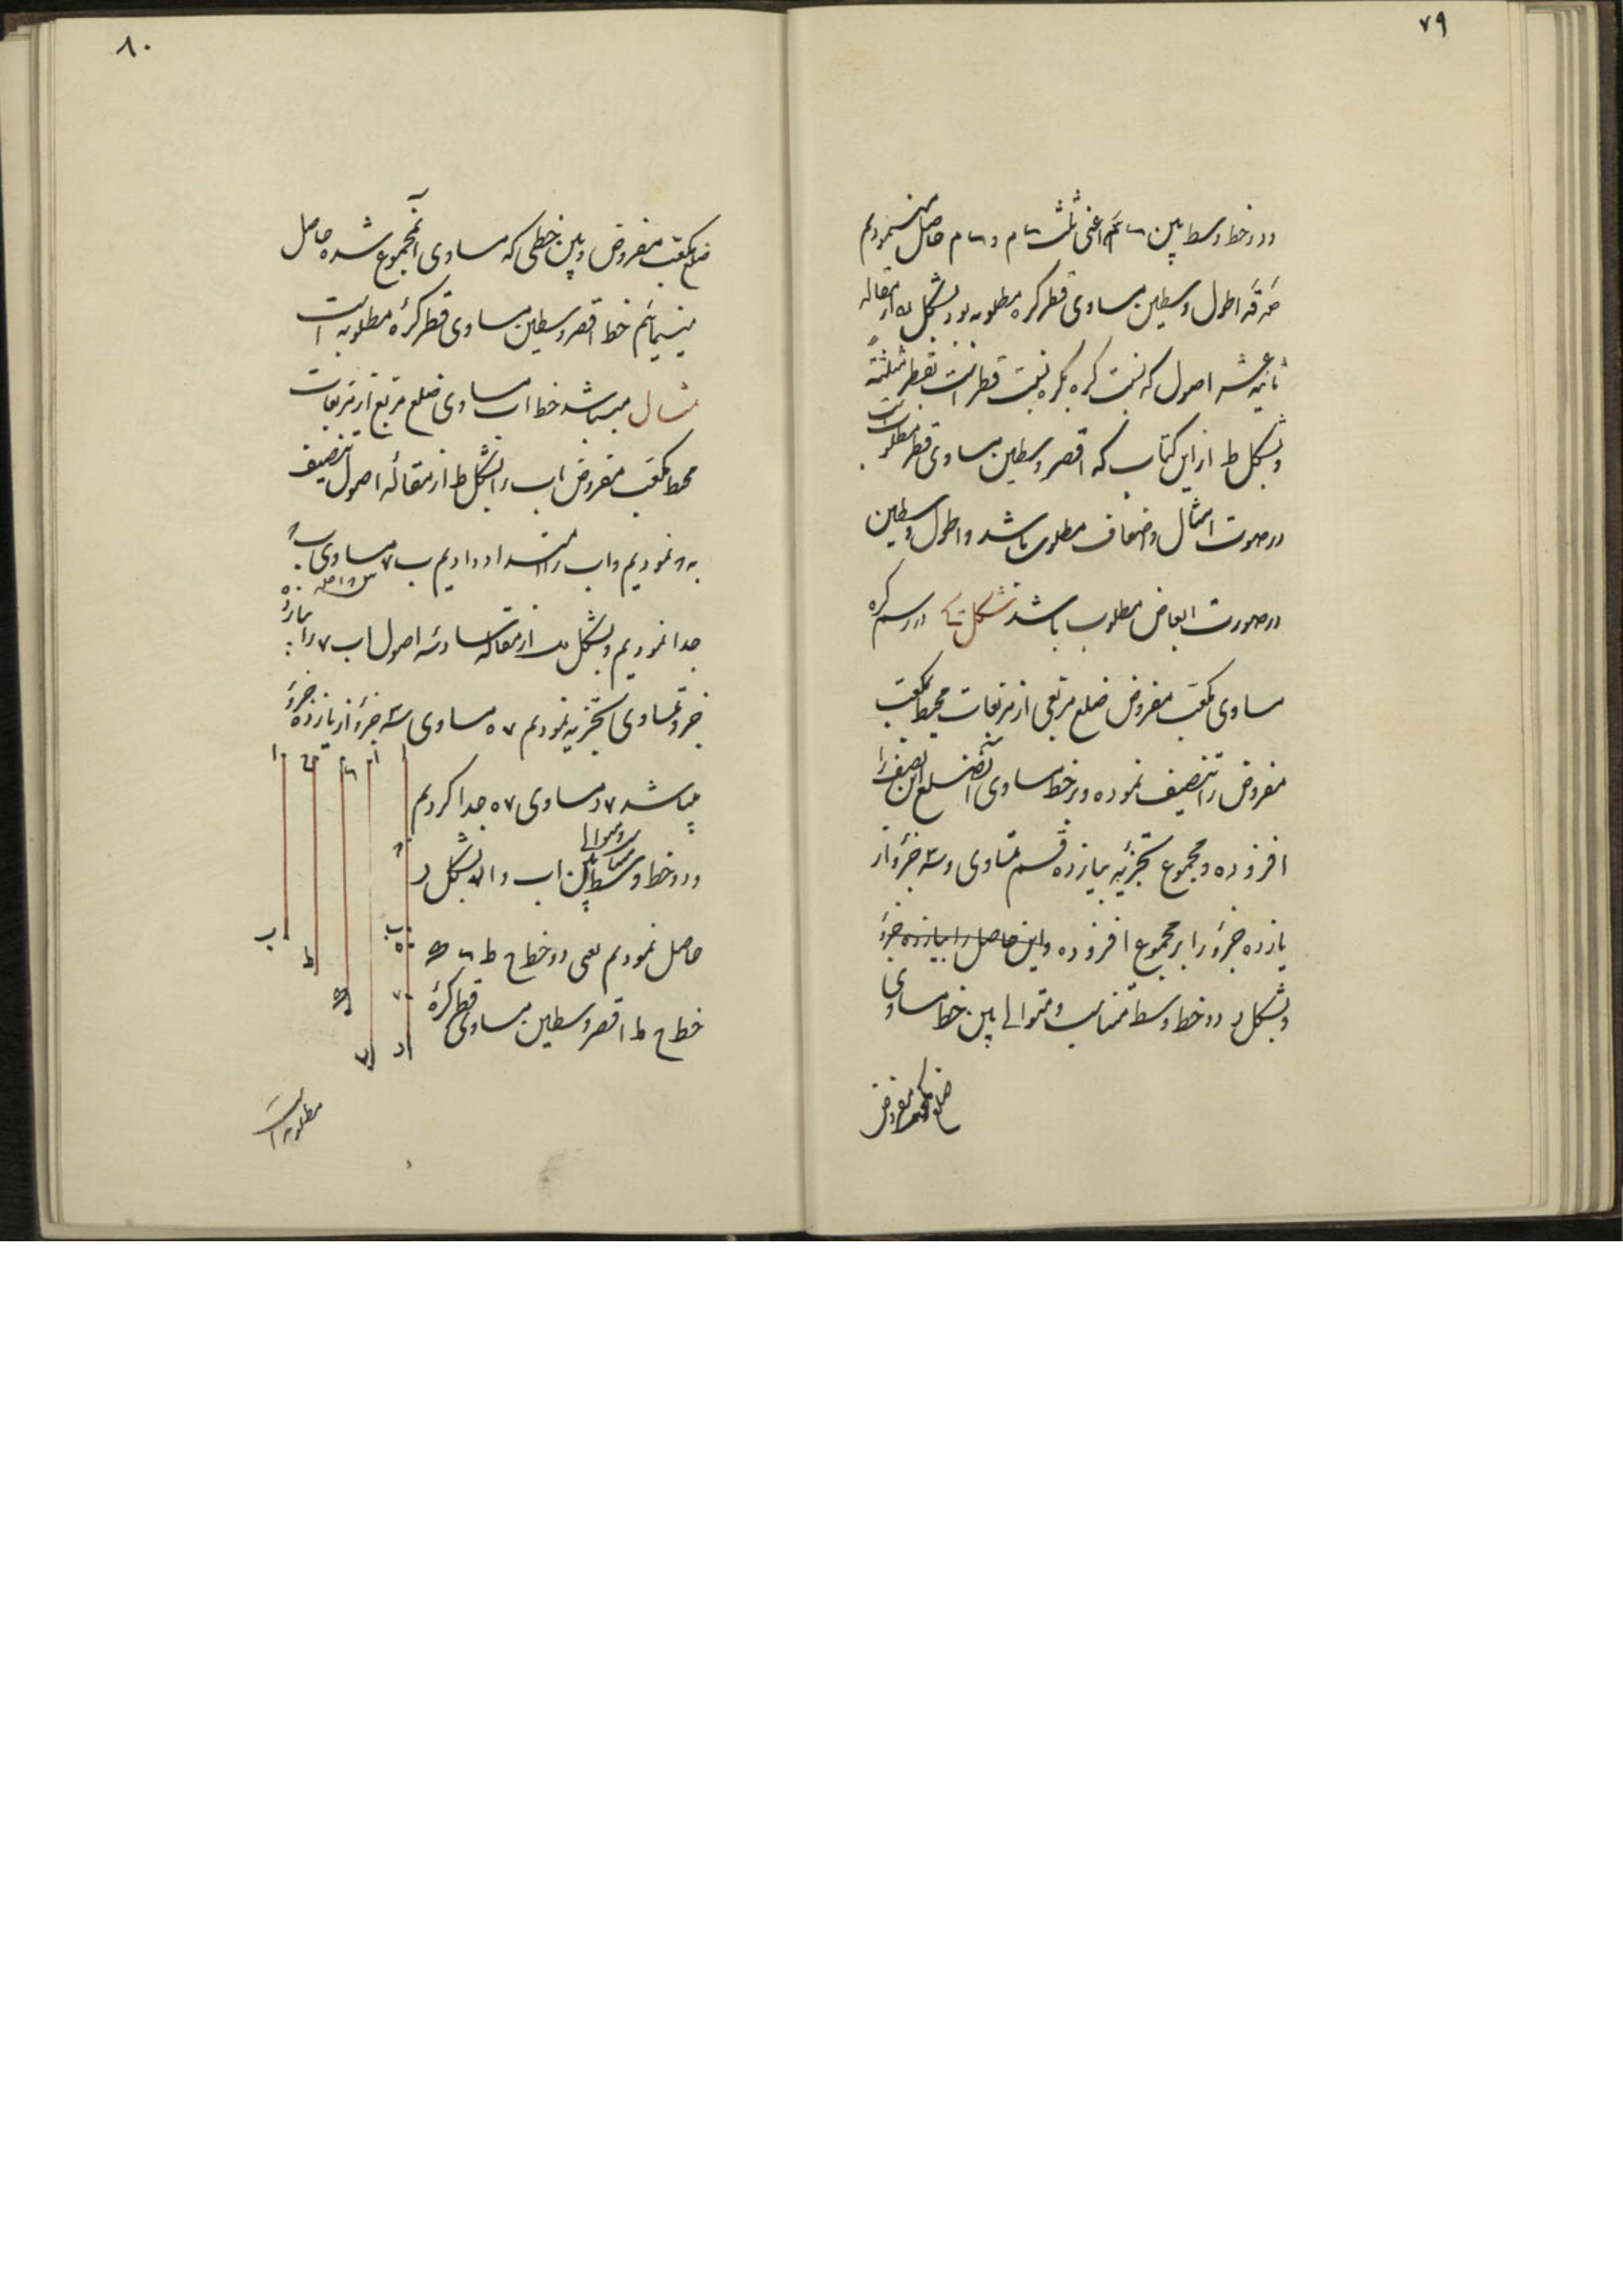 ۷۹
دو خط وسط بین اعنی ثلث و حاصل نمودیم
اطول وسطین مساوی قطر کره مطلوبه بود بشکل از مقاله
ثانیه عشر اصول که نسبت کره بکره نسبت قطر است بقطر مثلثة
وبشکل ط از این کتاب که اقصر وسطین مساوی قطر مطلوب است
در صورت امثال و اضعاف مطلوب باشد و اطول وسطین
در صورت ابعاض مطلوب باشد شکل در رسم کره
مساوی مکعب مفروض ضلع مربعی از مربعات محیط مکعب
مفروض را تنصیف نموده و بر خط مساوی آنضلع این نصف را
افزوده و مجموع تجزیه بیازده قسم متساوی و سه جزؤ از
یازده جزؤ را بر مجموع افزوده و این حاصل را بیازده جزؤ
وبشکل د دو خط وسط متناسب و متوالی بین خط مساوی
ضلع مکعب مفروض
۸۰
ضلع مکعب مفروض و بین خطی که مساوی آنمجموع شده حاصل
مینمائیم خط اقصر وسطین مساوی قطر کرۀ مطلوبه است
مثال میباشد خط اب مساوی ضلع مربع از مربعات
محیط مکعب مفروض اب را بشکل ط از مقالۀ اصول تنصیف
به نمودیم و اب را امتداد دادیم ب ۷ مساوی
جدا نمودیم و بشکل از مقاله سادسه اصول اب ۷ را
جزو متساوی تجزیه نمودیم ۷ ه مساوی سه جزؤ از یازده جزؤ
میباشد ۷ د مساوی ۷ ه جدا کردیم
و دو خط وسط متناسب و متوالی بین اب و اد بشکل د
حاصل نمودیم یعنی دو خط ح ط
خط ح ط اقصر وسطین مساوی قطر کرۀ
مطلوبه است